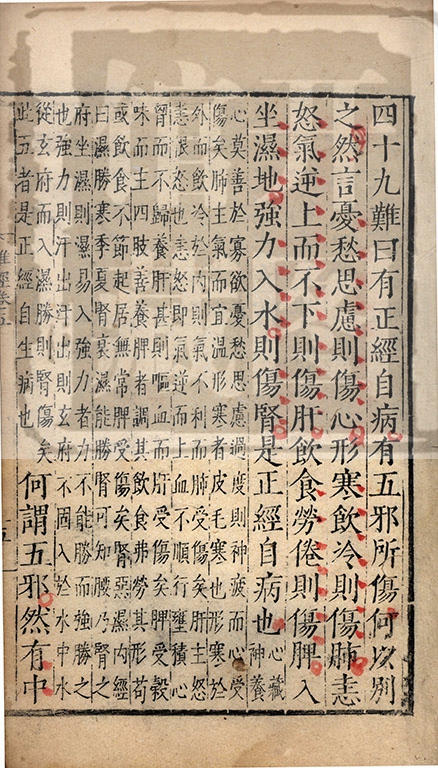 四十九難曰有正經自病有五邪所傷何以別
之然言憂愁思慮則傷心形寒飲冷則傷肺恚
怒氣逆上而不下則傷肝飲食勞倦則傷脾久
坐濕地強力入水則傷腎是正經自病也心藏
神養
心莫善於寡欲憂愁思慮過度則神疲而心受
傷矣肺主氣而宜溫形寒者皮毛寒也形寒於
外而飲冷於內則氣不利而肺受傷矣肝主怒
恚恨怒也恚怒即氣逆而上血不順行壅積心
胃而不歸養肝甚則嘔血而肝受傷矣脾受穀
味而主四肢善養脾者調其飲食弗勞其形苟
或飲食不節起居無常脾受傷矣腎惡濕內經
曰濕勝寒季夏腎衰濕能勝腎可知腰乃腎之
府坐濕則濕易入強力者力不能勝而強勝之
也強力則汗出汗出則玄府不固入於水中水
從玄府而入濕勝則腎傷矣
此五者是正經自生病也
何謂五邪然有中